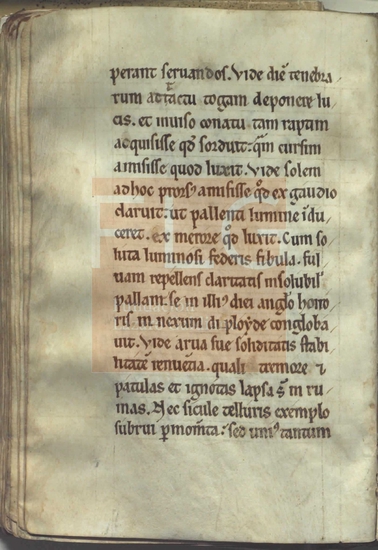 perant seruandos. Vide diē tenebra
rum adtactu togam deponere lu
cis. et inuiso conatu. tam raptim
acquisisse qd̄ sorduit: quā cursim
amisisse quod luxit. Vide solem
adhoc prorsꝰ amisisse qd̄ ex gaudio
claruit: ut pallenti lumine īdu
ceret. ex merore qd̄ luxit. Cum so
luta luminosi federis fibula. ful
uam repellens claritatis insolubilē
pallam. se in illiꝰ diei anglo hono
ris in nexum
uit. Vide arua sue soliditatis stabi
litatē renuētia. quali tremore ⁊
patulas et ignotis lapsa sūt in ru
inas. Nec sicule telluris exemplo
subrui ꝑ momta: sed uniꝰ tantum